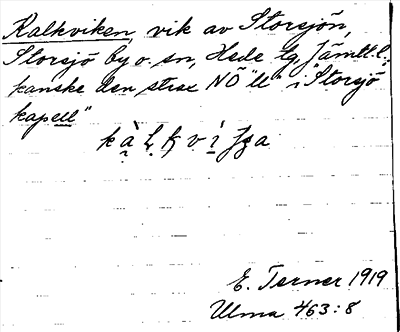 Kalkviken, vik av Storsjön,
Storsjö by o. sn, Hede tg, Jämtl. l.;
kanske den strax NÖ "ll" i "Storsjö
kapell"
E. Terner 1919
Ulma 463:8